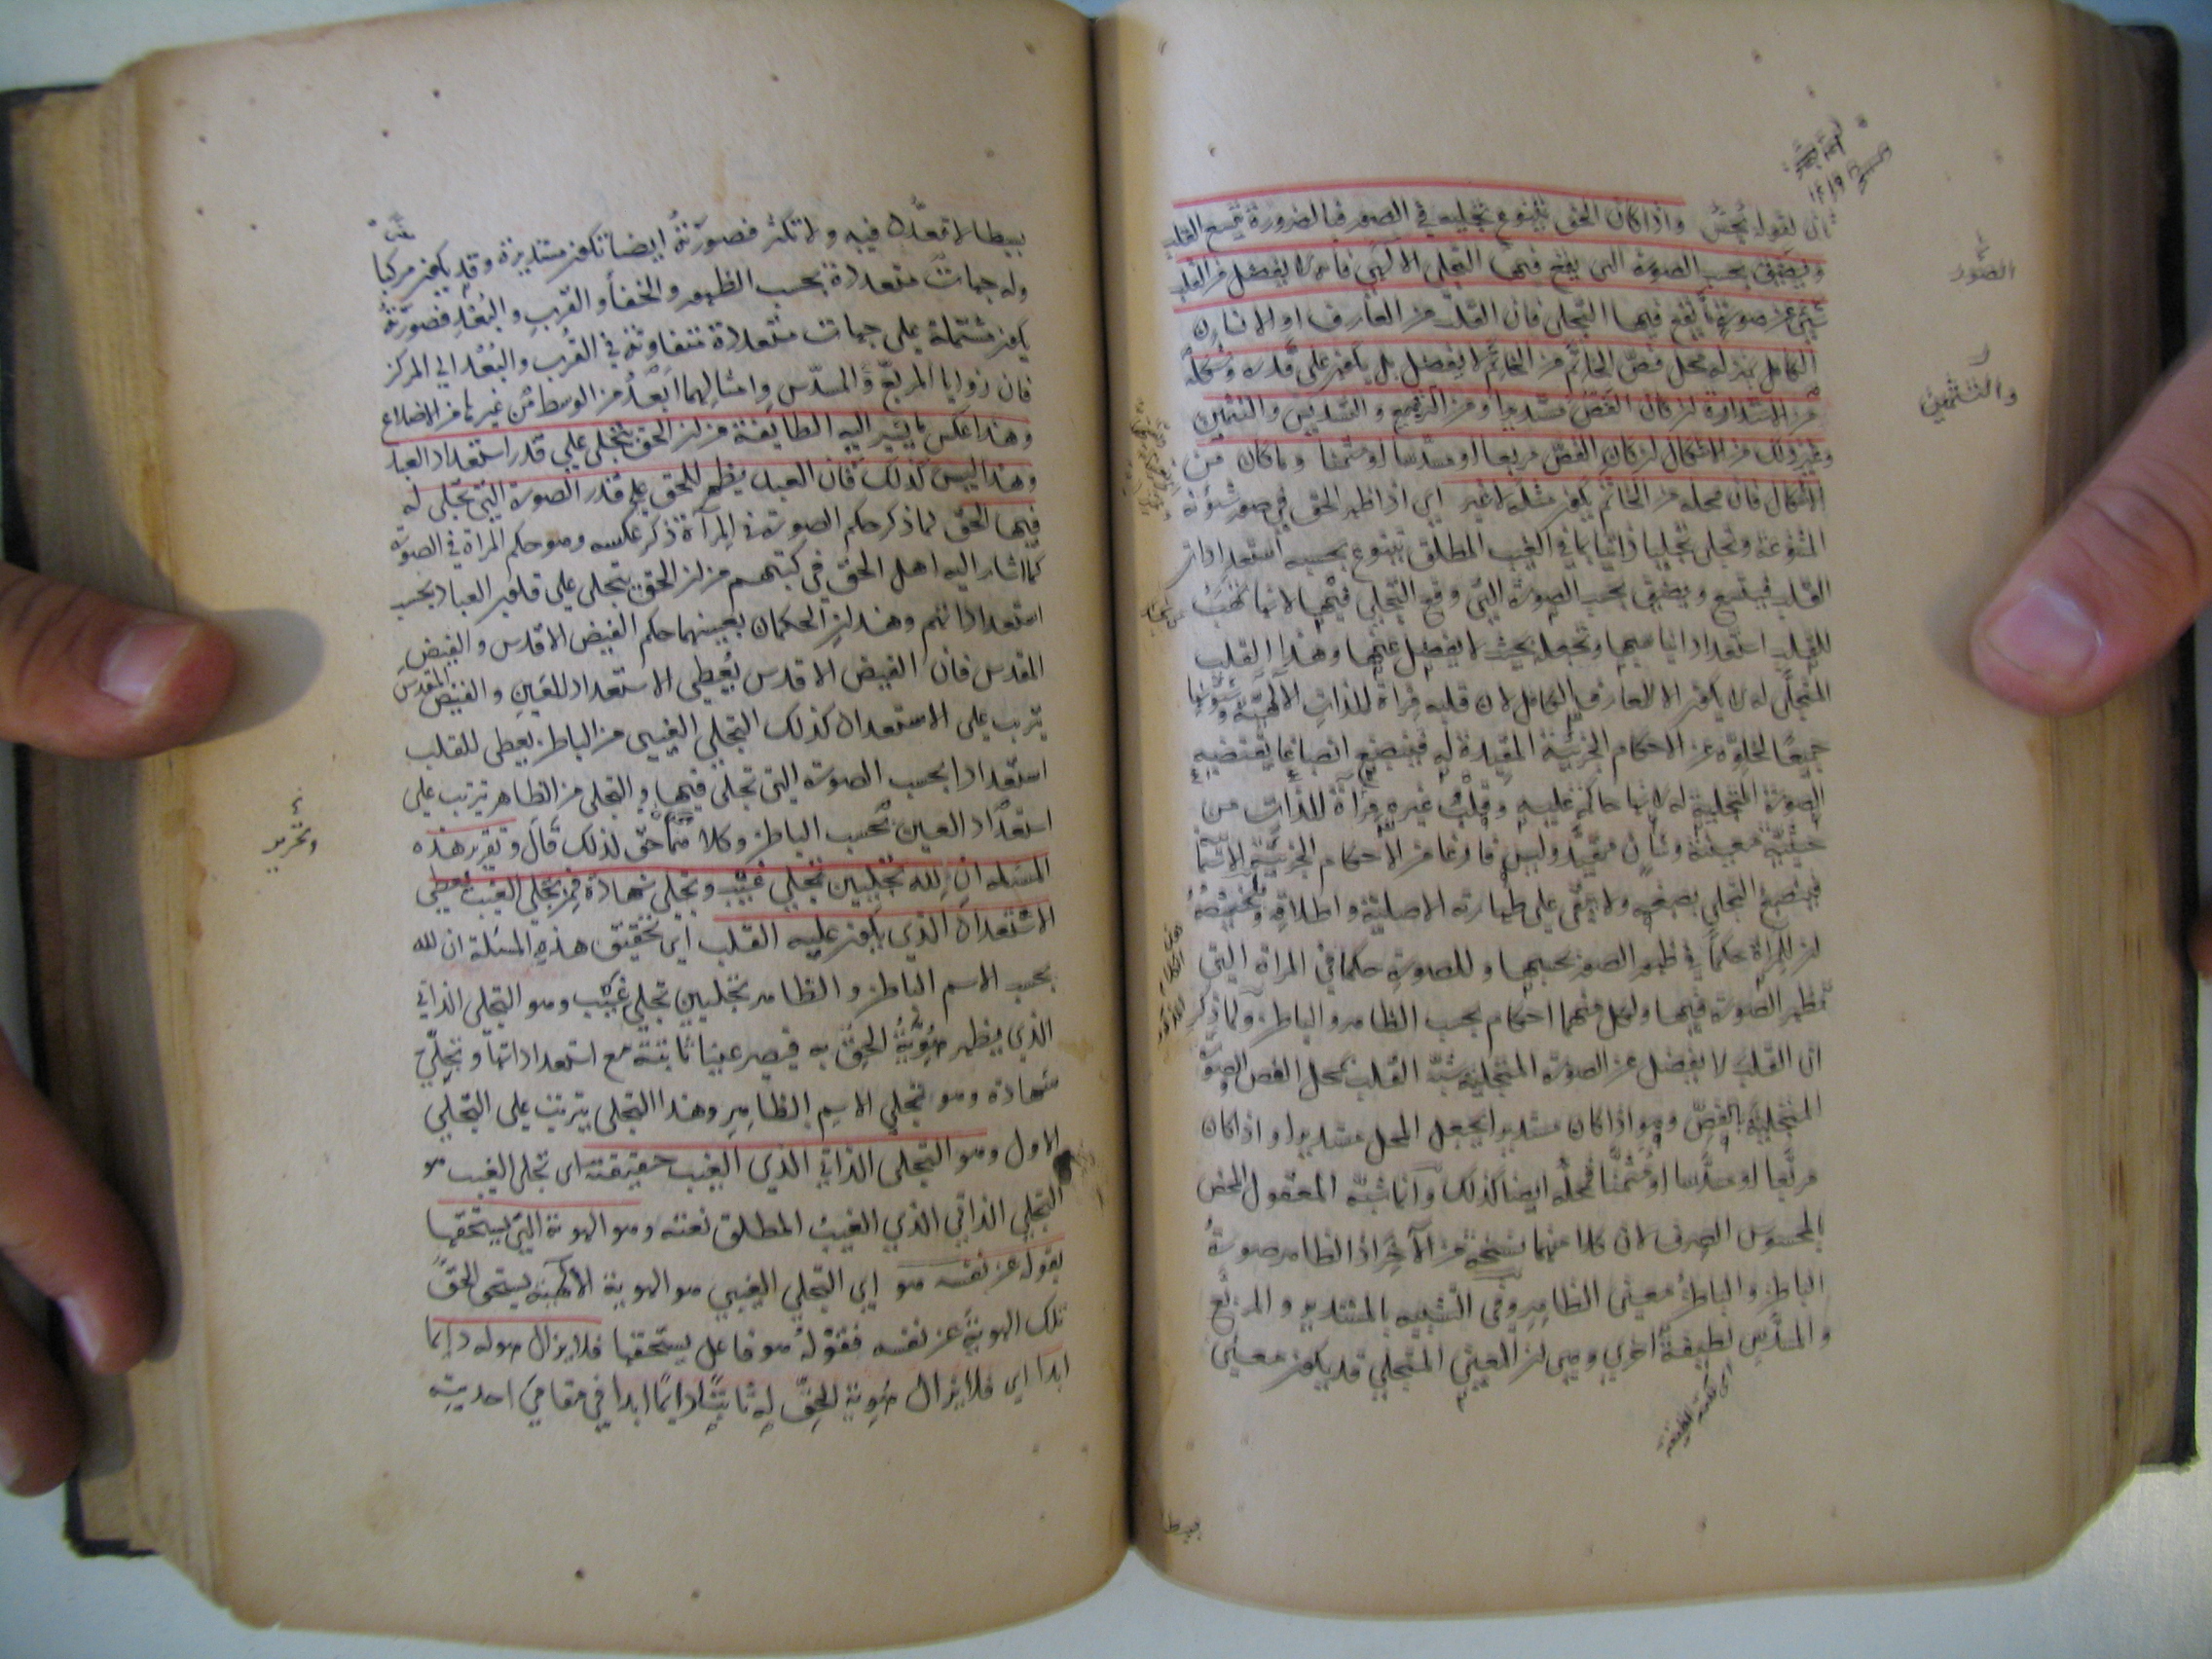 ثان لقوله يحس واذا كان الحق يتنوع تجليه في الصور فبالضرورة يتسع القلب
ويضيق بحسب الصورة التي يقع فيها التجلي الالهي فانه لا يفضل من القلب
شيئ عن صورة ما يقع فيها التجلي فان القلب من العارف او الانسان
الكامل بمنزلة محل فص الخاتم من الخاتم لا يفضل بل يكون على قدره وشكله
من الاستدارة ان كان الفص مستديرا ومن التربيع والتسديس والتثمين
وغير ذلك من الاشكال ان كان الفص مربعا او مسدسا او مثمنا وما كان من
الاشكال فان محله من الخاتم يكون مثله لا غير اي اذا ظهر الحق في صور شؤنه
المتنوعة وتجلى تجليا ذاتيا بما في الغيب المطلق يتنوع بحسبه استعدادات
القلب فيتسع ويضيق بحسب الصورة التي وقع التجلي فيها لانها تهب
للقلب استعدادا يناسبها وتجعله بحيث لا يفضل عنها وهذا القلب
المتجلى له لا يكون الا للعارف الكامل لان قلبه مرآة للذات الالهية وشؤنها
جميعا لخلوه عن الاحكام الجزئية المقيدة له فينصبغ انصباغا يقتضيه
الصورة المتجلية له لانها حاكمة عليه وقلب غيره مرآة للذات من
حيثية معينة وشأن مقيد وليس فارغا من الاحكام الجزئية الا سيما
فينصبغ التجلي بصبغه ولا يبقى على طهارته الاصلية واطلاقه وتحقيقه
ان للمرآة حكما في ظهور الصور بحسبها وللصورة حكما في المرآة التي
تظهر الصورة فيها ولكل منهما احكام بحسب الظاهر والباطن ولما ذكر
ان القلب لا يفضل عن الصورة المتجلية شبه القلب بمحل الفص والصورة
المتجلية بالفص وهو اذا كان مستديرا يجعل المحل مستديرا واذا كان
مربعا او مسدسا او مثمنا فمحله ايضا كذلك وانما شبه المعقول المحض
بالمحسوس الصرف لان كلا منهما نسخة من الآخر اذ الظاهر صورة
الباطن والباطن معنى الظاهر وفي التشبيه بالمستدير والمربع
والمسدس لطيفة اخرى وهي ان المعنى المتجلي قد يكون معنى
الصور
والتثمين
بسيطا لا تعدد فيه ولا تكثر فصورته ايضا تكون مستديرة وقد يكون مركبا
وله جهات متعددة بحسب الظهور والخفأ والقرب والبعد فصورته
يكون مشتملة على جهات متعددة متفاوتة في القرب والبعد الى المركز
فان زوايا المربع والمسدس وامثالهما ابعد من الوسط من غيرها من الاضلاع
وهذا عكس ما يشير اليه الطايفة من ان الحق يتجلى على قدر استعداد العبد
وهذا ليس كذلك فان العبد يظهر للحق على قدر الصورة التي تجلى له
فيها الحق لما ذكر حكم الصورة في المرآة ذكر عكسه وهو حكم المرآة في الصورة
كما اشار اليه اهل الحق في كتبهم من ان الحق يتجلى على قلوب العباد بحسب
استعداداتهم وهذان الحكمان بعينهما حكم الفيض الاقدس والفيض
المقدس فان الفيض الاقدس يعطي الاستعداد للعين والفيض المقدس
يترتب على الاستعداد كذلك التجلي الغيبي من الباطن يعطي للقلب
استعدادا بحسب الصورة التي تجلى فيها والتجلي من الظاهر يترتب على
استعداد العين بحسب الباطن وكلاهما حق لذلك قال وتقرير هذه
المسئلة ان لله تجليين تجلي غيب وتجلي شهادة فمن تجلي الغيب يعطي
الاستعداد الذي يكون عليه القلب اي تحقيق هذه المسئلة ان لله
بحسب الاسم الباطن والظاهر تجليين تجلي غيب وهو التجلي الذاتي
الذي يظهر هوية الحق به فيصير عينا ثابتة مع استعداداتها وتجلي
شهادة وهو تجلي الاسم الظاهر وهذا التجلي يترتب على التجلي
الاول وهو التجلي الذاتي الذي الغيب حقيقته اي تجلي الغيب هو
التجلي الذاتي الذي الغيب المطلق نعته وهو الهوية التي يستحقها
بقوله عن نفسه هو اي التجلي الغيبي هو الهوية الالهية يستحق الحق
تلك الهوية عن نفسه فقوله هو فاعل يستحقها فلا يزال هو له دايما
ابدا اي فلا يزال هوية الحق له ثابتة دايما ابدا في مقامي احديته
وتحرير